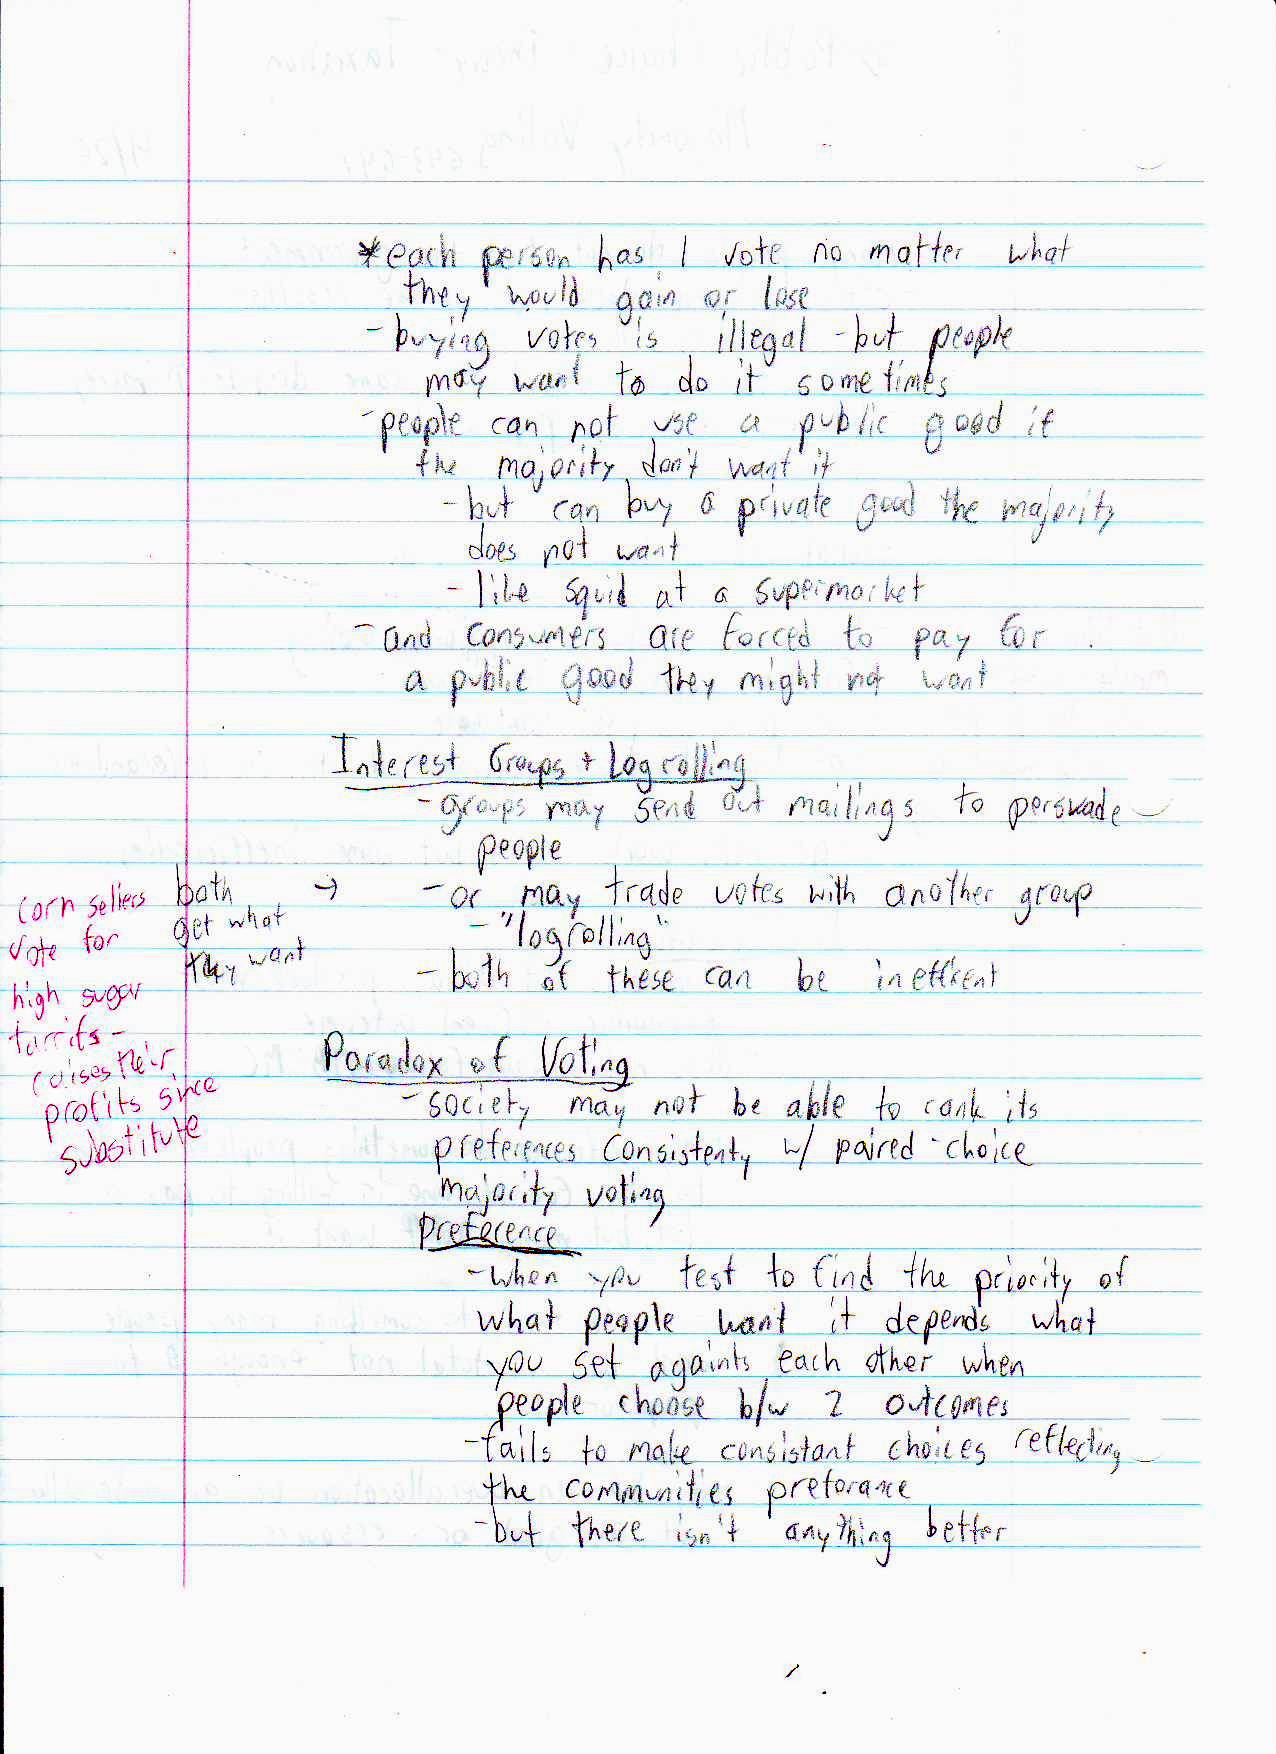 *each person has 1 vote no matter what
they would gain or lose
- buying votes is illegal - but people
may want to do it sometimes
- people can not use a public good if
the majority don't want it
- but can buy a private good the majority
does not want
- like squid at a supermarket
- and consumers are forced to pay for
a public good they might not want
Interest Groups + Logrolling
- groups may send out mailings to persuade
people
both get what they want →
- or may trade votes with another group
- "logrolling"
- both of these can be inefficent
corn sellers
vote for
high sugar
tarrifs -
raises their
profits since
substitute
Paradox of Voting
- society may not be able to rank its
preferences consistenty w/ paired-choice
majority voting
Preference
- when you test to find the priority of
what people want it depends what
you set againts each other when
people choose b/w 2 outcomes
- fails to make consistant choices reflecting
the communities preforance
- but there isn't anything better